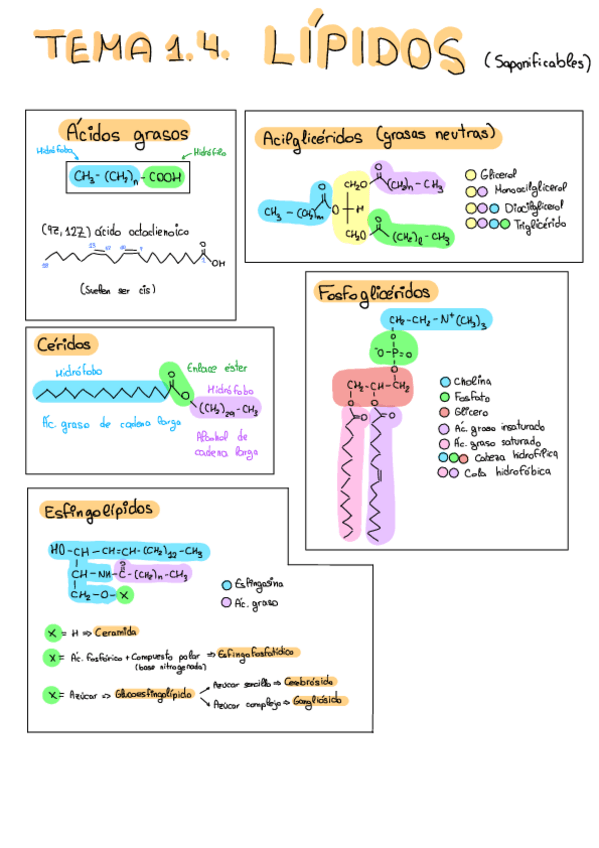 TEMA 1.4. LÍPIDOS (Saponificables)
Ácidos grasos
Hidrófobo
Hidrófilo
CH₃-(CH₂)n-COOH
(9Z,12Z) ácido octadienoico
O
OH
(Suelen ser cis)
Acilglicéridos (grasas neutras)
O
CH₂O (CH₂)n-CH₃
O
CH₃-(CH₂)m O H
O
CH₂O (CH₂)l-CH₃
Glicerol
Monoacilglicerol
Diacilglicerol
Triglicérido
Céridos
Hidrófobo
Enlace éster
O
O
Hidrófobo
(CH₂)29-CH₃
Ác. graso de cadena larga
Alcohol de
cadena larga
Fosfoglicéridos
CH₂-CH₂-N⁺(CH₃)₃
O
⁻O-P=O
O
CH₂-CH-CH₂
O O
O O
Cholina
Fosfato
Glicero
Ác. graso insaturado
Ác. graso saturado
Cabeza hidrofílica
Cola hidrofóbica
Esfingolípidos
HO-CH-CH=CH-(CH₂)12-CH₃
O
CH-NH-C-(CH₂)n-CH₃
CH₂-O-X
Esfingosina
Ác. graso
X = H ⇒ Ceramida
X = Ác. fosfórico + Compuesto polar ⇒ Esfingofosfatídico
(base nitrogenada)
X = Azúcar ⇒ Glucoesfingolípido
Azúcar sencillo ⇒ Cerebrósido
Azúcar complejo ⇒ Gangliósido